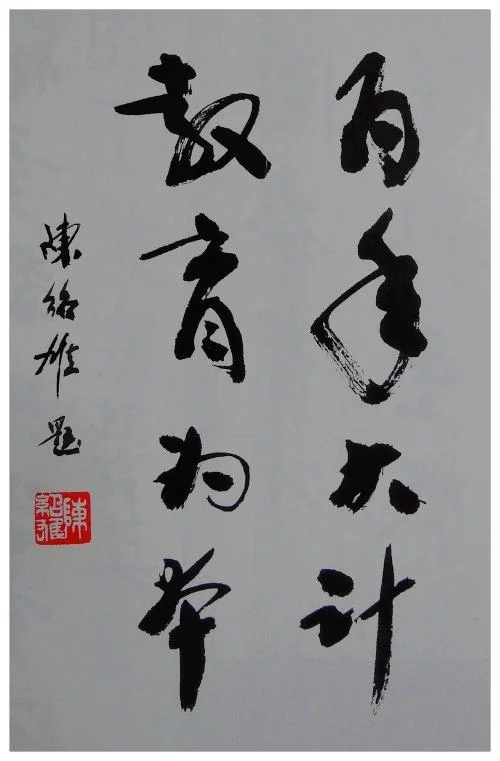 百年大计
教育为本
陳紹雄题
陳紹雄